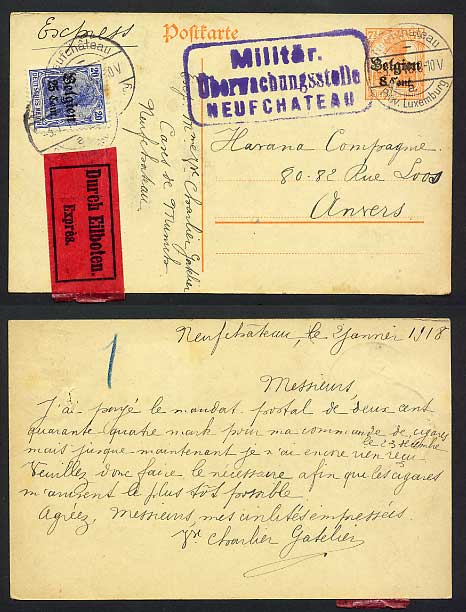 Express
Postkarte
Neufchâteau
Belgien
25 Cent.
20
Militär.
Überwachungsstelle
NEUFCHATEAU
Belgien
8 Cent.
Luxemburg
Durch Eilboten.
Exprès.
Charlier Gatelier
Café de Munich
Neufchateau
Havana Compagnie
80-82 Rue Loos
Anvers
1
Neufchateau, le 3 Janvier 1918
Messieurs,
J'ai payé le mandat postal de deux cent
quarante quatre mark pour ma commande de cigares
le 23 décembre
mais jusque maintenant je n'ai encore rien reçu
Veuillez donc faire le nécessaire afin que les cigares
m'arrivent le plus tôt possible.
Agréez, Messieurs, mes civilités empressées.
Charlier Gatelier